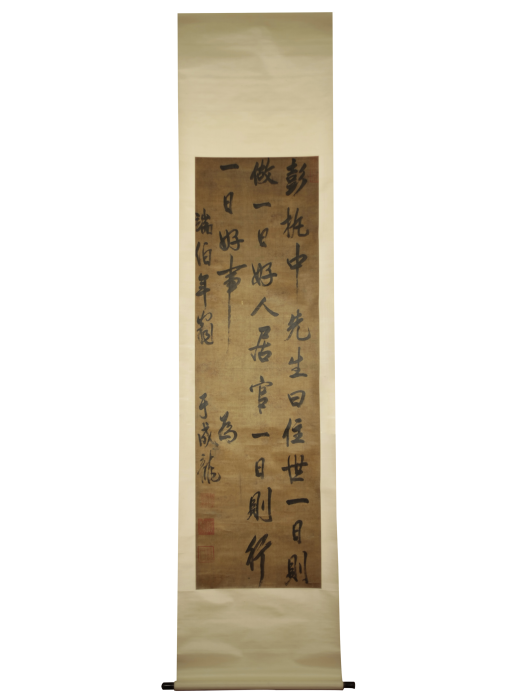 彭執中先生曰住世一日則
做一日好人居官一日則行
一日好事 為
端伯年翁 于成龍